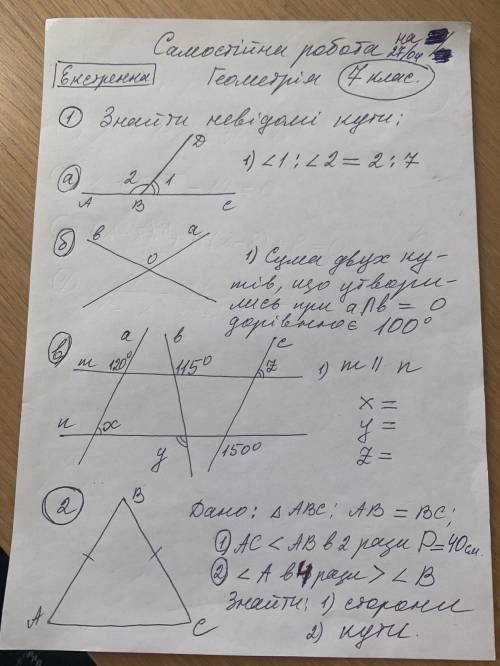 Самостійна робота на
27/04
Екстренна Геометрія 7 клас.
1 Знайти невідомі кути:
а) 2 1 A B C D 1) ∠1 : ∠2 = 2 : 7
б) в а О 1) Сума двух ку-
тів, що утвори-
лись при a∩b = O
дорівнює 100°
в) a в c
m 120° 115° z 1) m || n
n x x =
y 150° y =
z =
2 B Дано: △ABC; AB = BC;
1) AC < AB в 2 рази P=40см.
2) <A в 4 рази > <B
A C Знайти: 1) сторони
2) кути.